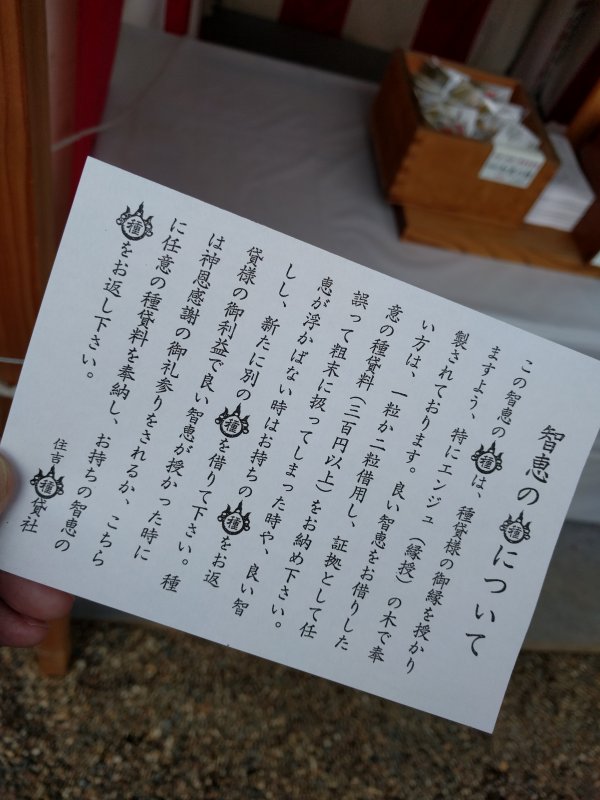 智恵の種について
この智恵の種は、種貸様の御縁を授かり
ますよう、特にエンジュ（縁授）の木で奉
製されております。良い智恵をお借りした
い方は、一粒か二粒借用し、証拠として任
意の種貸料（三百円以上）をお納め下さい。
誤って粗末に扱ってしまった時や、良い智
恵が浮かばない時はお持ちの種をお返
しし、新たに別の種を借りて下さい。種
貸様の御利益で良い智恵が授かった時に
は神恩感謝の御礼参りをされるか、こちら
に任意の種貸料を奉納し、お持ちの智恵の
種をお返し下さい。
住吉種貸社